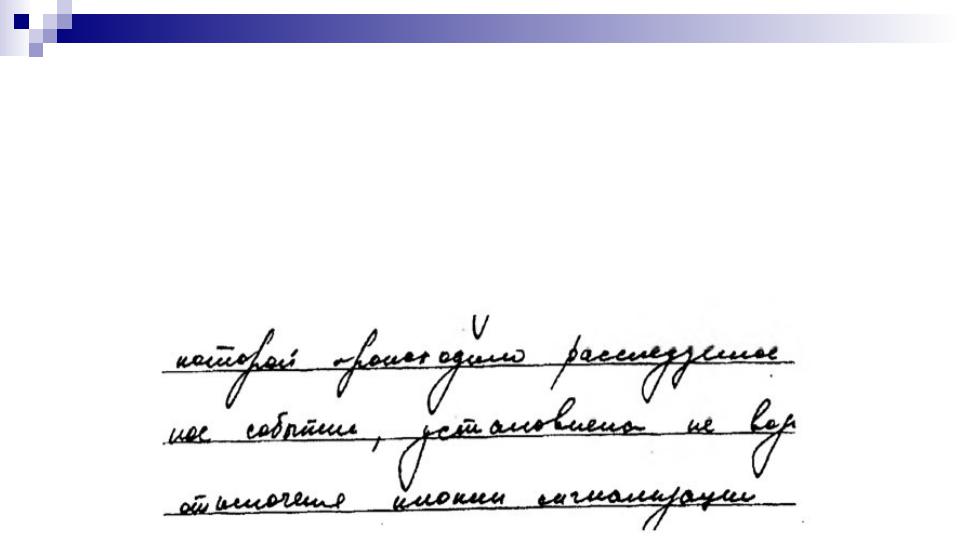 которой происходило расследуемое
ное событие, установлена не вор
отключения кнопки сигнализации